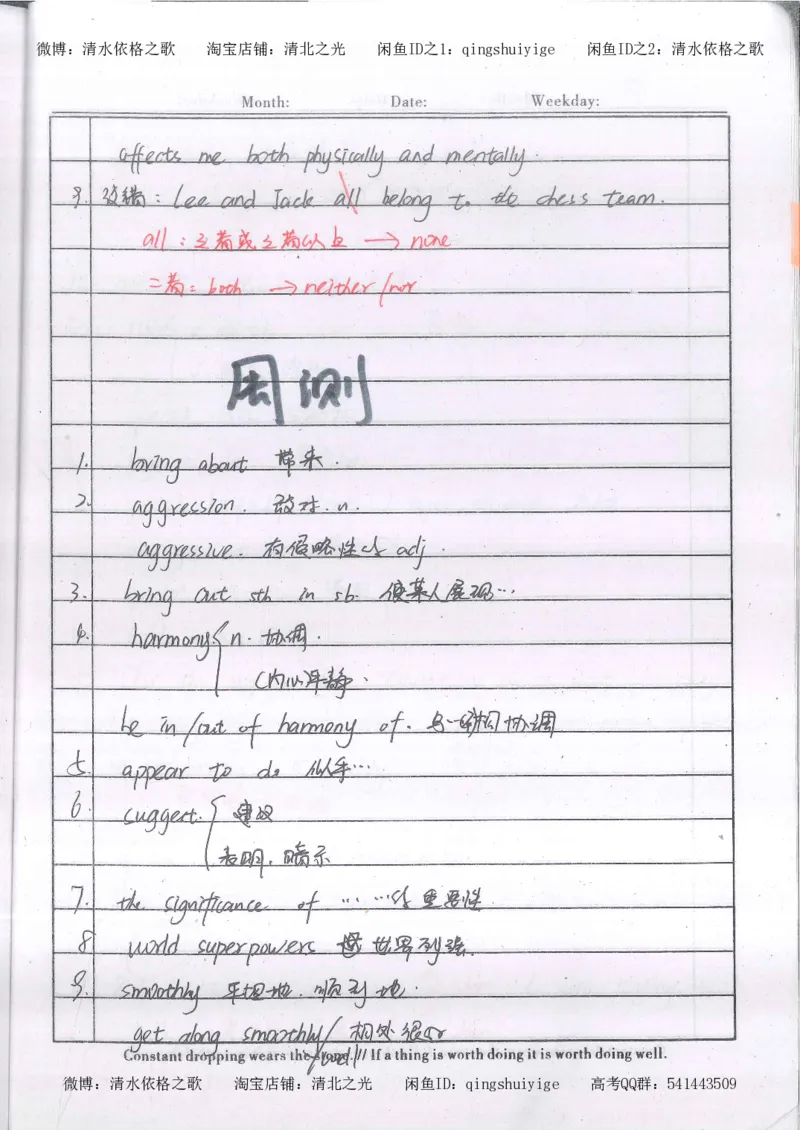 微博：清水依格之歌 淘宝店铺：清北之光 闲鱼ID之1：qingshuiyige 闲鱼ID之2：清水依格之歌
Month: Date: Weekday:
affects me both physically and mentally.
9. 改错：Lee and Jack all belong to the chess team.
all：三者或三者以上 → none
二者：both → neither/nor
周测
1. bring about 带来.
2. aggression. 敌对. n.
aggressive. 有侵略性的 adj.
3. bring out sth in sb. 使某人展现…
4. harmony { n. 协调.
(内心)平静.
be in/out of harmony of. 与…协调
5. appear to do 似乎…
6. suggest. { 建议
表明，暗示
7. the significance of ……的重要性
8 world superpowers 世界列强.
9. smoothly 平坦地. 顺利地.
get along smoothly/ 相处很好
well
Constant dropping wears the stone. // If a thing is worth doing it is worth doing well.
微博：清水依格之歌 淘宝店铺：清北之光 闲鱼ID：qingshuiyige 高考QQ群：541443509